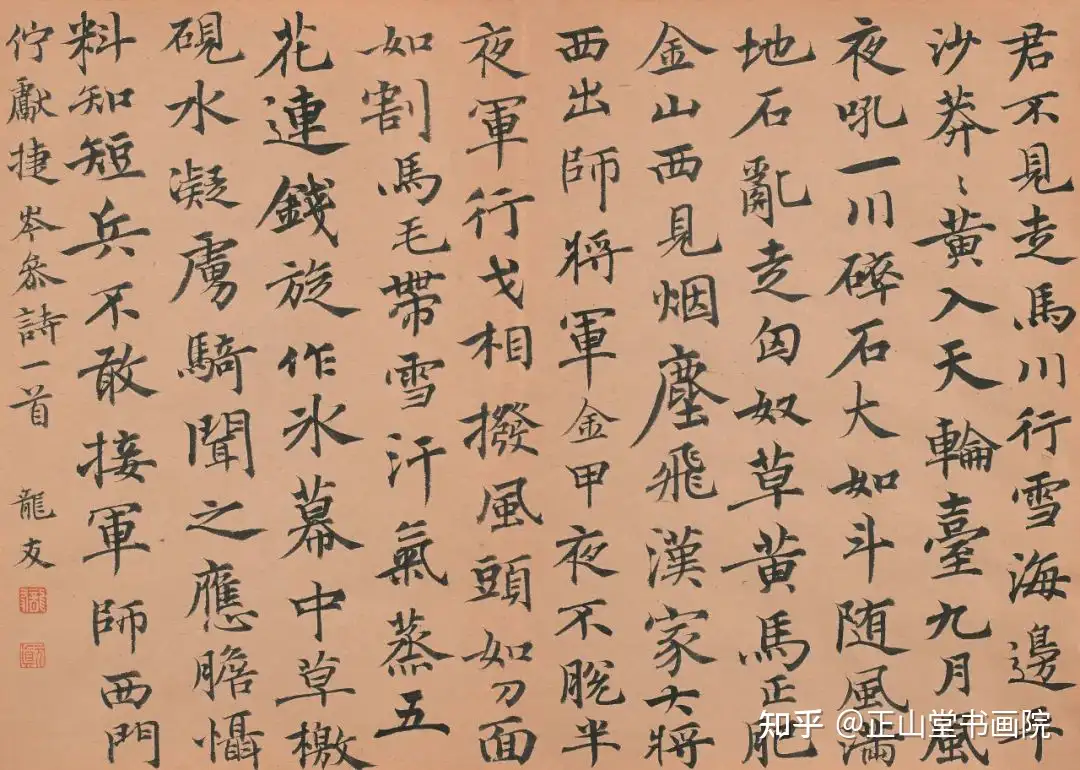 君不見走馬川行雪海邊平
沙莽〻黃入天輪臺九月風
夜吼一川碎石大如斗随風滿
地石亂走匈奴草黄馬正肥
金山西見烟塵飛漢家大將
西出師將軍金甲夜不脫半
夜軍行戈相撥風頭如刀面
如割馬毛帶雪汗氣蒸五
花連錢旋作氷幕中草檄
硯水凝虜騎聞之應膽懾
料知短兵不敢接軍師西門
佇獻捷 岑叅詩一首 龍友
知乎 @正山堂书画院